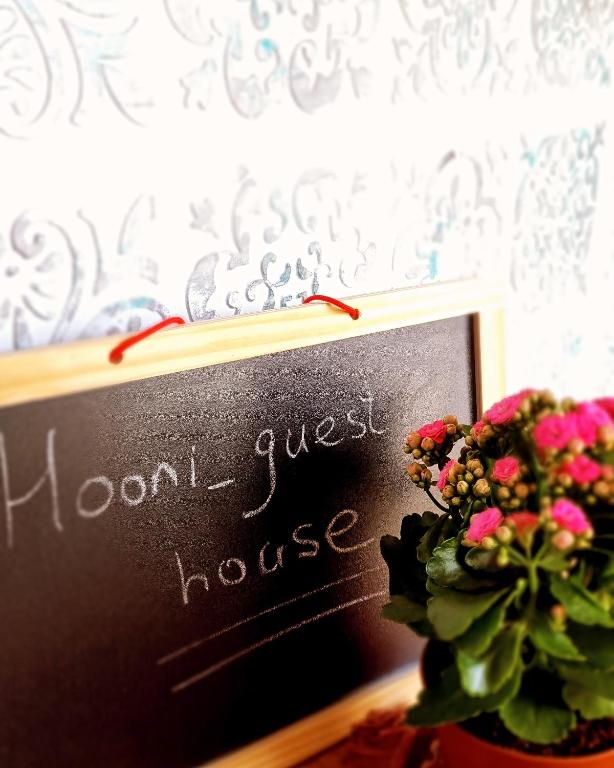 Hooni_guest
house